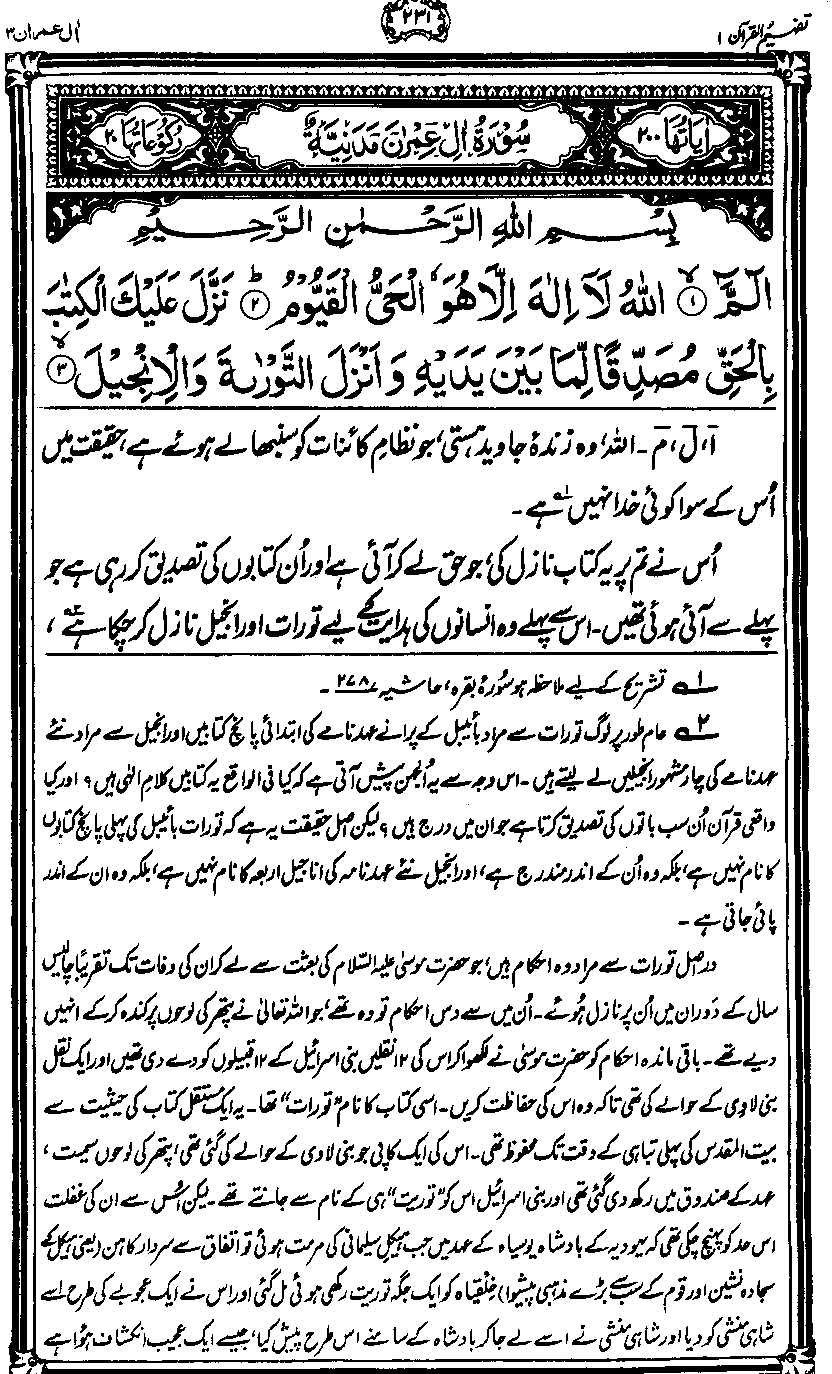 تفہیم القرآن ۱
۲۳۱
اٰل عمران ۳
اٰیَاتُهَا ۲۰۰
سُوْرَةُ اٰلِ عِمْرٰنَ مَدَنِیَّةٌ
رُكُوْعَاتُهَا ۲۰
بِسْمِ اللّٰهِ الرَّحْمٰنِ الرَّحِیْمِ
الٓمَّٓ ۙ﴿۱﴾ اللّٰهُ لَاۤ اِلٰهَ اِلَّا هُوَ ۙ الْحَیُّ الْقَیُّوْمُ ؕ﴿۲﴾ نَزَّلَ عَلَیْكَ الْكِتٰبَ
بِالْحَقِّ مُصَدِّقًا لِّمَا بَیْنَ یَدَیْهِ وَ اَنْزَلَ التَّوْرٰىةَ وَ الْاِنْجِیْلَ ۙ﴿۳﴾
ا، ل، م۔ اللہ، وہ زندۂ جاوید ہستی، جو نظامِ کائنات کو سنبھالے ہوئے ہے، حقیقت میں
اُس کے سوا کوئی خدا نہیں ہے۔ ۱
اُس نے تم پر یہ کتاب نازل کی، جو حق لے کر آئی ہے اور اُن کتابوں کی تصدیق کر رہی ہے جو
پہلے سے آئی ہوئی تھیں۔ اس سے پہلے وہ انسانوں کی ہدایت کے لیے تورات اور انجیل نازل کر چکا ہے ۲،
۱ تشریح کے لیے ملاحظہ ہو سُورۂ بقرہ، حاشیہ ۲۷۸۔
۲ عام طور پر لوگ تورات سے مراد بائیبل کے پرانے عہد نامے کی ابتدائی پانچ کتابیں اور انجیل سے مراد نئے
عہد نامے کی چار مشہور انجیلیں لے لیتے ہیں۔ اس وجہ سے یہ اُلجھن پیش آتی ہے کہ کیا فی الواقع یہ کتابیں کلامِ الٰہی ہیں؟ اور کیا
واقعی قرآن اُن سب باتوں کی تصدیق کرتا ہے جو ان میں درج ہیں؟ لیکن اصل حقیقت یہ ہے کہ تورات بائیبل کی پہلی پانچ کتابوں
کا نام نہیں ہے، بلکہ وہ اُن کے اندر مندرج ہے، اور انجیل نئے عہد نامہ کی اناجیل اربعہ کا نام نہیں ہے، بلکہ وہ ان کے اندر
پائی جاتی ہے۔
دراصل تورات سے مراد وہ احکام ہیں، جو حضرت موسیٰ علیہ السّلام کی بعثت سے لے کر ان کی وفات تک تقریباً چالیس
سال کے دَوران میں اُن پر نازل ہُوئے۔ اُن میں سے دس احکام تو وہ تھے، جو اللہ تعالیٰ نے پتّھر کی لوحوں پر کندہ کر کے انہیں
دیے تھے۔ باقی ماندہ احکام کو حضرت موسیٰ نے لکھوا کر اس کی ۱۲ نقلیں بنی اسرائیل کے ۱۲ قبیلوں کو دے دی تھیں اور ایک نقل
بنی لاوِی کے حوالے کی تھی تاکہ وہ اس کی حفاظت کریں۔ اسی کتاب کا نام ”تورات“ تھا۔ یہ ایک مستقل کتاب کی حیثیت سے
بیت المقدس کی پہلی تباہی کے وقت تک محفوظ تھی۔ اس کی ایک کاپی جو بنی لاوی کے حوالے کی گئی تھی، پتھر کی لوحوں سمیت،
عہد کے صندوق میں رکھ دی گئی تھی اور بنی اسرائیل اس کو ”توریت“ ہی کے نام سے جانتے تھے۔ لیکن اُس سے ان کی غفلت
اس حد کو پہنچ چکی تھی کہ یہودیہ کے بادشاہ یوسیاہ کے عہد میں جب ہیکلِ سلیمانی کی مرمت ہوئی تو اتفاق سے سردار کاہن (یعنی ہیکل کے
سجادہ نشین اور قوم کے سب سے بڑے مذہبی پیشوا) خِلقیاہ کو ایک جگہ توریت رکھی ہوئی مل گئی اور اس نے ایک عجوبے کی طرح اسے
شاہی منشی کو دیا اور شاہی منشی نے اسے لے جا کر بادشاہ کے سامنے اس طرح پیش کیا، جیسے ایک عجیب انکشاف ہُوا ہے